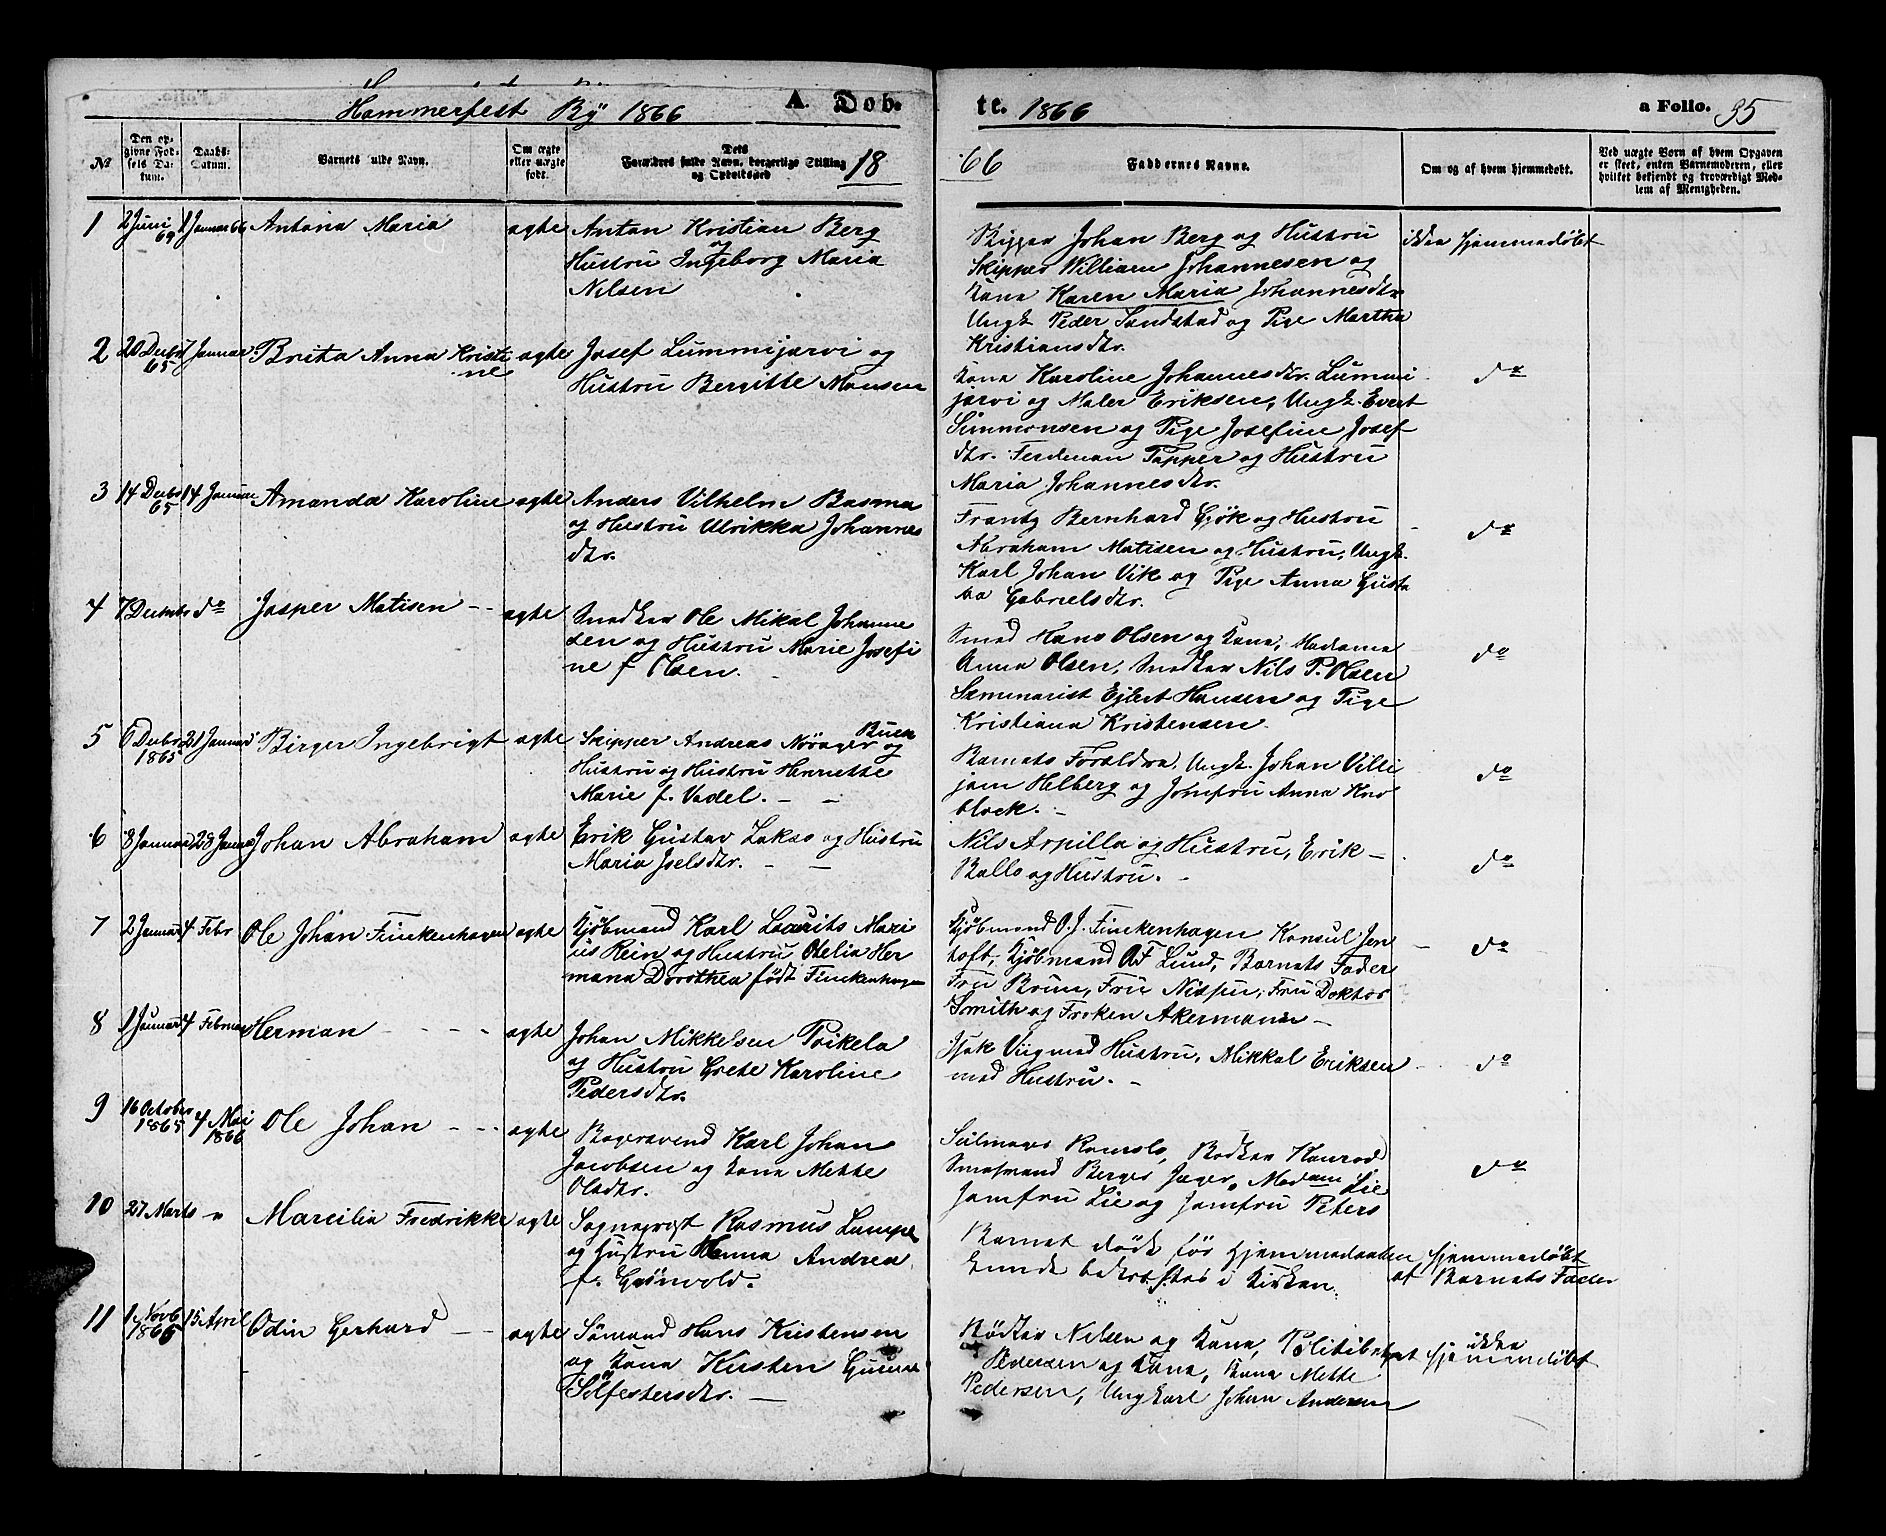 Hammerfest By 1866 A. Dob-
te. 1866 a Folio. 35
No
Den op-
givne Fød-
sels Da-
tum.
Daabs-
Datum.
Barnets fulde Navn.
Om ægte
eller uægte
født.
Dets
Forældres fulde Navn, borgerlige Stilling
og Opholdssted
18
66
Faddernes Navne.
Om og af hvem hjemmedøbt.
Ved uægte Børn af hvem Opgaven
er skeet, enten Barnemoderen, eller
hvilket bekjendt og troværdigt Med-
lem af Menigheden.
1 2 Juni 1 Januar 66 Antona Maria ægte Anton Kristian Berg
og
Hustru Ingeborg Maria
Nilsen
Skipper Johan Berg og Hustru
Skipper William Johannesen og
Kona Karen Maria Johannesdtr
Ungk Peder Sandstad og Pige Martha
Kristiansdtr.
ikke hjemmedøbt
2 20 Decbr 65 7 Januar Brita Anna Kristi
ne
ægte Josef Lummijarvi og
Hustru Bergitte Monsen
Kona Karoline Johannesdtr. Lummi
jarvi og Maler Eriksen, Ungk. Evert
Simmonsen og Pige Josefine Josef
dtr. Ferdinan Tapper og Hustru
Maria Johannesdtr.
do
3 14 Decbr 65 14 Januar Amanda Karoline ægte Anders Vilhelm Basma
og Hustru Ulrikka Johannes
dtr.
Frantz Bernhard Gjøk og Hustru
Abraham Matisen og Hustru, Ungk.
Karl Johan Vik og Pige Anna Gusta
va Gabrielsdtr.
do
4 7 Decmbr do Jasper Matisen ægte Snedker Ole Mikal Johanne
sen og Hustru Marie Josefi
ne f Olsen.
Smed Hans Olsen og Kona, Madame
Anna Olsen, Snedker Nils P. Olsen
Semmarist Ejlert Hansen og Pige
Kristiana Kristensen.
do
5 6 Decbr 1865 21 Januar Birger Ingebrigt ægte Skipper Andreas Norager Buck og
Hustru og Hustru Henriette
Marie f. Vadel.
Barnets Forældre, Ungk. Johan Villi
jam Helberg og Jomfru Anna Kno
block.
do
6 8 Januar 28 Januar Johan Abraham ægte Erik Gustav Lakso og Hustru
Maria Iselsdtr.
Nils Arpilla og Hustru, Erik
Ballo og Hustru.
do
7 2 Januar 4 Febr Ole Johan Finckenhagen ægte Kjøbmand Karl Laurits Mari
us Rein og Hustru Otelia Her
mana Dorothea født Finckenhagen
Kjøbmand O.J. Finckenhagen Konsul Jen
toft, Kjøbmand OF Lund, Barnets Fader
Fru Brun, Fru Nissen, Fru Doktor
Smith og Frøken Akermann
do
8 1 Januar 4 Februar Herman ægte Johan Mikkelsen Poikela
og Hustru Grete Karoline
Pedersdtr.
Isak Viig med Hustru, Mikkal Eriksen
med Hustru.
do
9 16 October 1865 4 Mai 1866 Ole Johan ægte Bagersvend Karl Johan
Jacobsen og Kona Mette
Olsdtr.
Seilmager Ramslo, Bødker Konrad
Smaamand Berger Jæger, Madam Lie
Jomfru Lie og Jomfru Peters
do
10 27 Marts " Marcilia Fredrikke ægte Sogneprest Rasmus Lampe
og Hustru Hanna Andrea
f. Grønvold.
Barnet døde før Hjemmedaaben
kunde bekræftes i Kirken
Hjemmedøbt
af Barnets Fader
11 1 Novb 1865 15 April Odin Gerhard ægte Sømand Hans Kristensen
og Kona Kirsten Gunna
Silfestersdtr.
Bødker Nilsen og Kona, Politibetjent
Pedersen og Kona, Kona Mette
Pedersen, Ungkarl Johan Andersen
ikke
hjemmedøbt